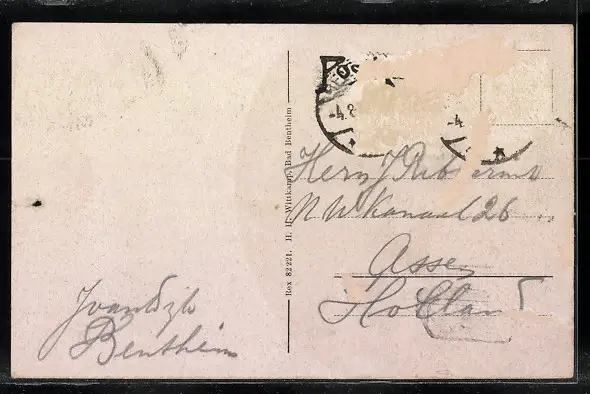 Jvandijk
Bentheim
Rex 82 221. H. H. Wittkamp, Bad Bentheim
-4.8
-4.
Herr J
N W Kanaal 26
Assen
Holland